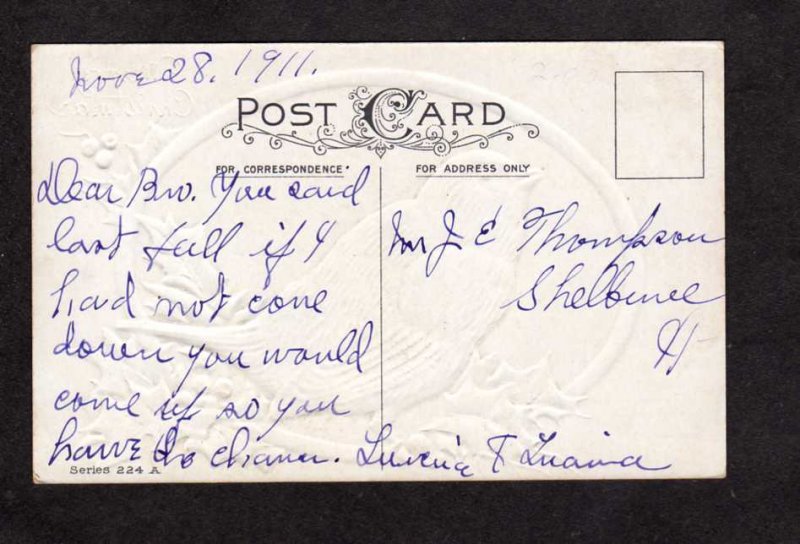 Nove 28. 1911.
POST CARD
FOR CORRESPONDENCE
FOR ADDRESS ONLY
Dear Bro. You said
last fall if I
had not come
down you would
come up so you
have the chance.
Mr J. E Thompson
Shelburne
Series 224 A